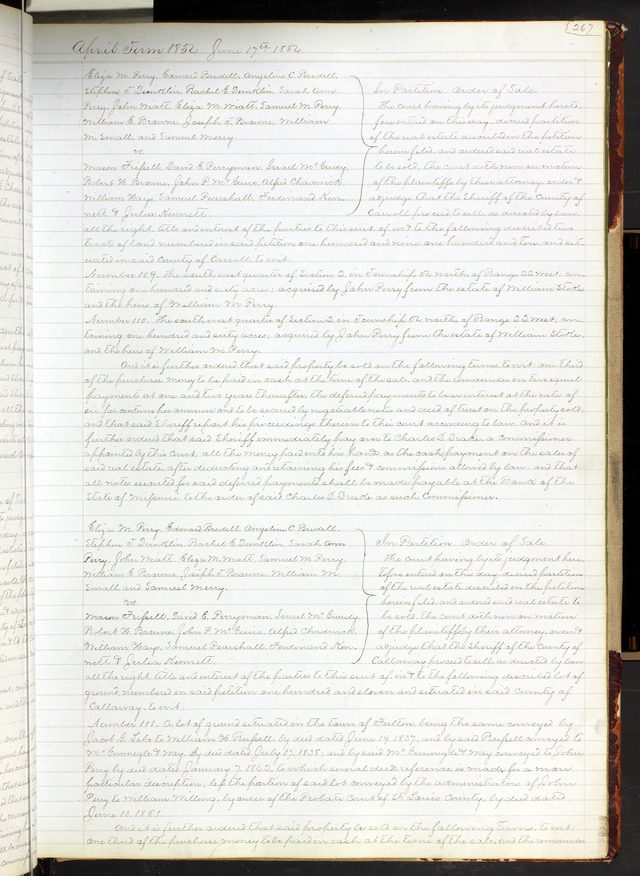 267
April Term 1852. June 17th 1852.
Eliza M. Perry, Edward Bredell, Angeline C. Bredell,
Stephen T. Dunklin, Rachel E. Dunklin, Sarah Ann
Perry, John Wiatt, Eliza M. Wiatt, Samuel M. Perry,
William E. Browne, Joseph T. Browne, William
M. Small, and Samuel Merry.
vs.
Mason Frissell, David E. Perryman, Israel McGready,
Robert H. Browne, John P. McGuire, Alfred Chadwick,
William Hays, Samuel Pearshall, Ferdinand Ken-
nett & Julia Kennett.
In Partition. Order of Sale.
The court having by its judgment hereto-
fore entered on this day, decreed partition
of the real estate described in the petition
herein filed, and ordered said real estate
to be sold, the court doth now on motion
of the plaintiffs by their attorney, order &
adjudge that the Sheriff of the County of
Carroll proceed to sell, as directed by law,
all the right, title and interest of the parties to this suit, of, in & to the following described two
tracts of land numbered in said petition one hundred and nine, one hundred and ten, and situ-
ated in said County of Carroll, to wit:
Number 109. The south east quarter of Section 2, in Township north of Range 22 West, con-
taining one hundred and sixty acres; acquired by John Perry from the estate of William Stokes
and the heirs of William M. Perry.
Number 110. The southwest quarter of Section 2, in Township north of Range 22 West, con-
taining one hundred and sixty acres, acquired by John Perry from the estate of William Stokes,
and the heirs of William M. Perry.
And it is further ordered that said property be sold on the following terms, to wit: one third
of the purchase money to be paid in cash at the time of the sale, and the remainder in two equal
payments at one and two years thereafter, the deferred payments to bear interest at the rate of
six per centum per annum and to be secured by negotiable notes and deed of trust on the property sold;
and that said Sheriff report his proceedings therein to this court according to law. And it is
further ordered that said Sheriff immediately pay over to Charles D. Drake, a commissioner
appointed by this Court, all the money paid into his hands as the cash payment on the sales of
said real estate, after deducting and retaining his fees & commissions allowed by law, and that
all notes executed for said deferred payments shall be made payable at the Bank of the
State of Missouri, to the order of said Charles D. Drake as such Commissioner.
Eliza M. Perry, Edward Bredell, Angeline C. Bredell,
Stephen T. Dunklin, Rachel E. Dunklin, Sarah Ann
Perry, John Wiatt, Eliza M. Wiatt, Samuel M. Perry,
William E. Browne, Joseph T. Browne, William M.
Small, and Samuel Merry.
vs.
Mason Frissell, David E. Perryman, Israel McGready,
Robert H. Browne, John P. McGuire, Alfred Chadwick,
William Hays, Samuel Pearshall, Ferdinand Ken-
nett & Julia Kennett.
In Partition. Order of Sale.
The court having by its judgment here-
tofore entered on this day, decreed partition
of the real estate described in the petition
herein filed, and ordered said real estate to
be sold, the court doth now on motion
of the plaintiffs by their attorney, order &
adjudge that the Sheriff of the County of
Callaway proceed to sell, as directed by law
all the right, title and interest of the parties to this suit of, in & to the following described lot of
ground, numbered in said petition one hundred and eleven and situated in said County of
Callaway, to wit:
Number 111. A lot of ground situated in the town of Fulton, being the same conveyed by
Jacob G. to William H. Russell, by deed dated June 19, 1837, and by said Russell conveyed to
& Way, by deed dated July 17, 1838, and by said & Way conveyed to John
Perry by deed dated January 7, to which several deeds reference is made for a more
particular description, less the portion of said lot conveyed by the administrators of John
Perry to William by order of the Probate Court of St. Louis County, by deed dated
June 10, 1851.
And it is further ordered that said property be sold on the following terms, to wit:
one third of the purchase money to be paid in cash at the time of the sale, and the remainder